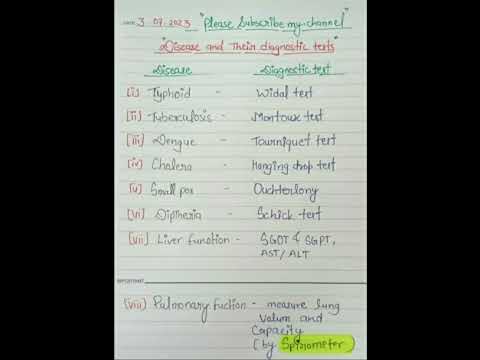 DATE: 3.07.2023 "Please Subscribe my channel"
"Disease and Their diagnostic tests"
Disease Diagnostic test
(i) Typhoid - Widal test
(ii) Tuberculosis - Montoux test
(iii) Dengue - Tourniquet test
(iv) Chalera - Hanging drop test
(v) Small pox - Ouchterlony
(vi) Diptheria - Schick test
(vii) Liver function - SGOT & SGPT,
AST/ALT
IMPORTANT
(viii) Pulmonary fuction - measure lung
Valum and
Capacity
(by Spiriometer)